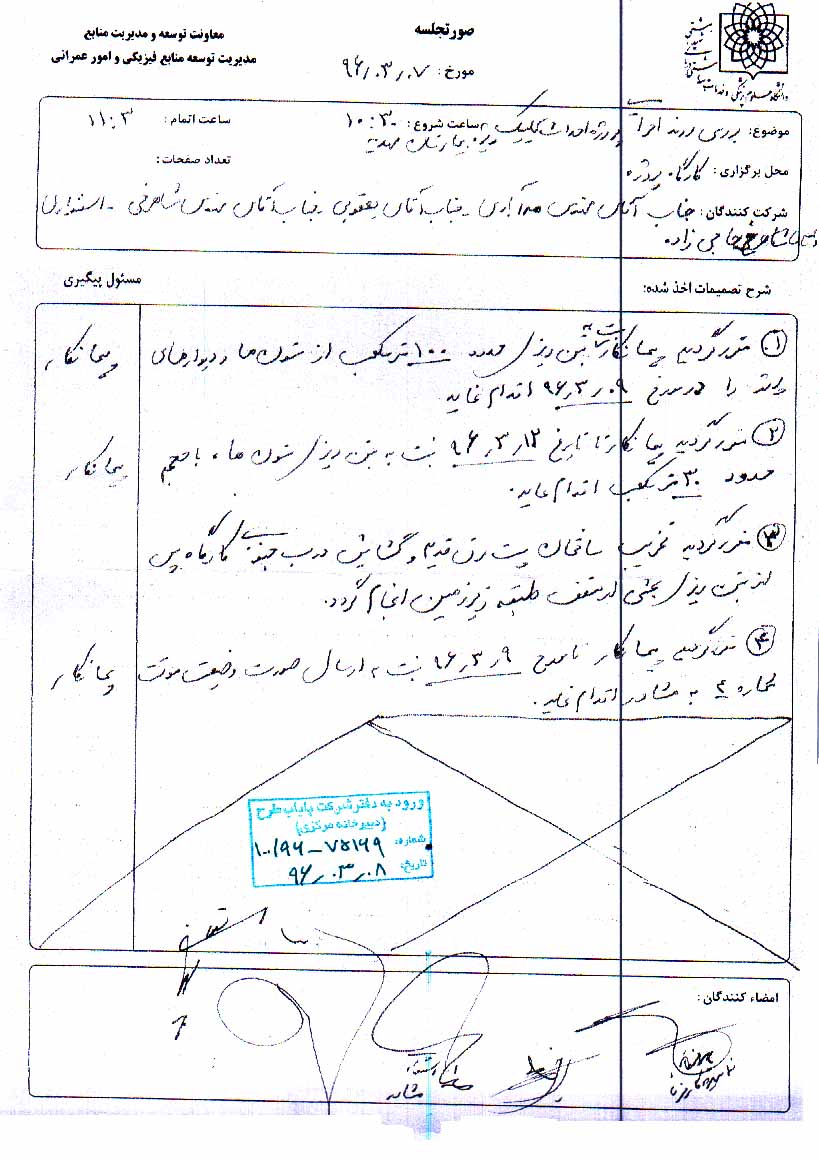 صورتجلسه
مورخ: ۹۶٫۰۳٫۰۷
معاونت توسعه و مدیریت منابع
مدیریت توسعه منابع فیزیکی و امور عمرانی
موضوع: بررسی روند اجرا پروژه احداث کلینیک ویژه بیمارستان مهدیه
ساعت شروع: ۱۰:۳۰
ساعت اتمام: ۱۱:۳۰
محل برگزاری: کارگاه پروژه
تعداد صفحات:
شرکت کنندگان: جناب آقای مهندس جناب آقای یعقوبی جناب آقای مهندس شاهرخی
حاجی زاده
شرح تصمیمات اخذ شده:
مسئول پیگیری
۱ مقرر گردید پیمانکار نسبت به بتن ریزی حدود ۱۰۰ متر مکعب از ستون ها و دیوارهای
را در مورخ ۹۶٫۳٫۰۹ اقدام نماید
پیمانکار
۲ مقرر گردید پیمانکار تا تاریخ ۹۶٫۳٫۱۳ نسبت به بتن ریزی ستون ها، با حجم
حدود ۳۰ متر مکعب اقدام نماید.
پیمانکار
۳ مقرر گردید تخریب ساختمان پست برق قدیم و گشایش درب جنوبی کارگاه پس
از بتن ریزی بخشی از سقف طبقه زیرزمین انجام گردد.
۴ مقرر گردید پیمانکار تا مورخ ۹۶٫۳٫۹ نسبت به ارسال صورت وضعیت موقت
شماره ۴ به مشاور اقدام نماید.
پیمانکار
ورود به دفتر شرکت پایاب طرح
(دبیرخانه مرکزی)
شماره: ۱۰۰/۹۶-۷۵۱۶۹
تاریخ: ۹۶٫۰۳٫۰۸
امضاء کنندگان:
مشاور